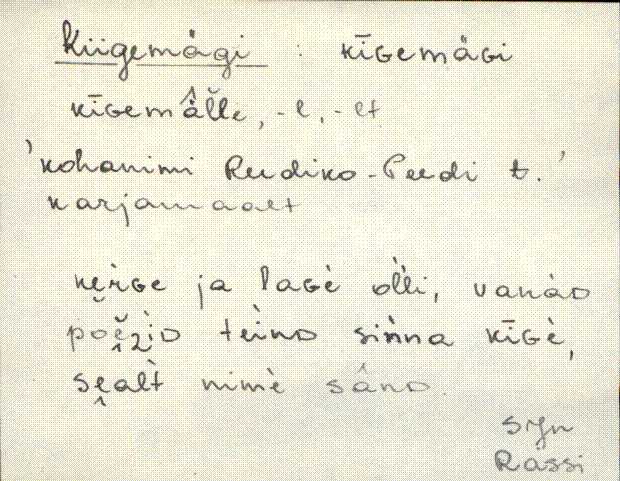 Kiigemägi : kīgemägi
kīgemä̭l̆l̆e, -l, -lt
'kohanimi Reediko-Peedi t.'
karjamaalt
kè̮rge ja lagè ol̀li, vanàD
poè̮ziD teìnD siǹna kīgè,
sḙal̀t nimè sânD.
Syn
Rassi